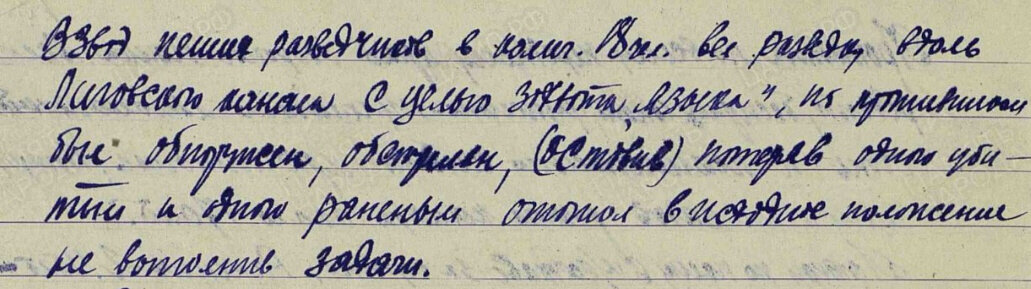 Взвод пеших разведчиков в колич. 18 чел. вел разведку вдоль
Лиговского канала с целью захвата „языка", но противником
был обнаружен, обстрелян, (оставив) потеряв одного уби-
тым и одного раненым отошел в исходное положение
не выполнив задачи.